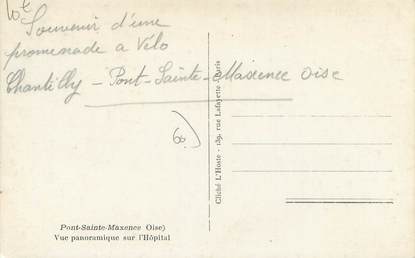 10 €
Souvenir d'une
promenade a Vélo
Chantilly - Pont-Sainte-Maxence Oise
60)
Cliché L'Hoste - 139, rue Lafayette - Paris
Pont-Sainte-Maxence Oise)
Vue panoramique sur l'Hôpital